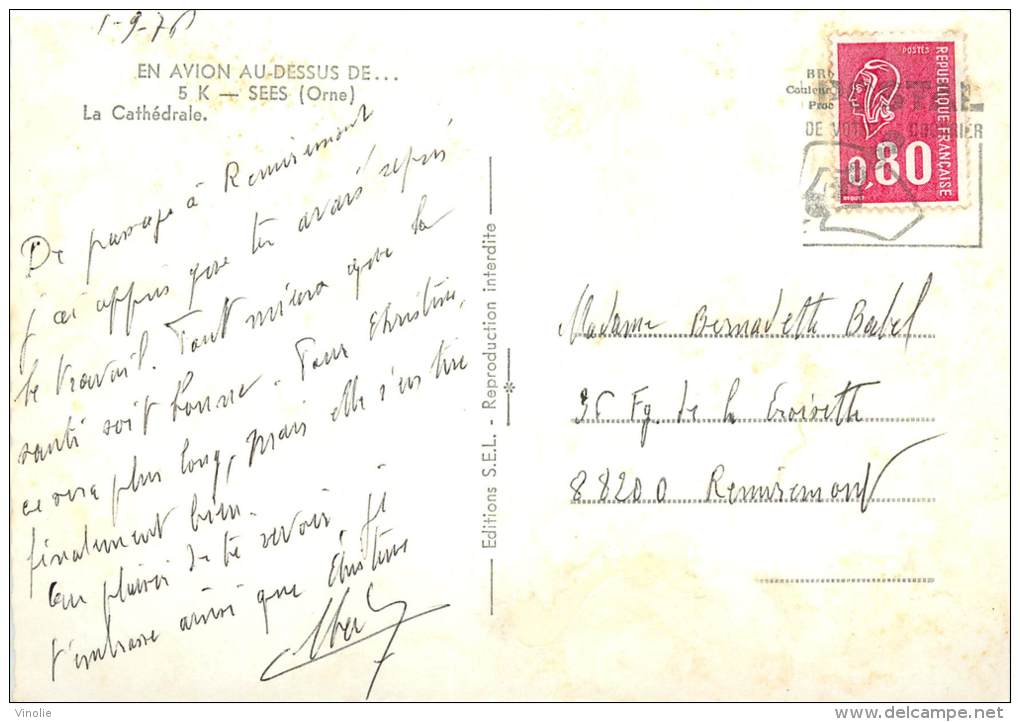 1-9-76
EN AVION AU-DESSUS DE...
5 K — SEES (Orne)
La Cathédrale.
De passage à Remiremont
j'ai appris que tu avais repris
le travail. Tant mieux que la
santé soit bonne. Pour Christine,
ce sera plus long, mais elle s'en tire
finalement bien.
Au plaisir de te revoir, je
t'embrasse ainsi que Christine
Editions S.E.L. - Reproduction interdite
POSTES
REPUBLIQUE FRANÇAISE
0,80
BEQUET
POSTAL
DE VOT COURRIER
Madame Bernadette Babel
35 Fg. de la Croisette
88200 Remiremont
Vinolie
delcampe.net